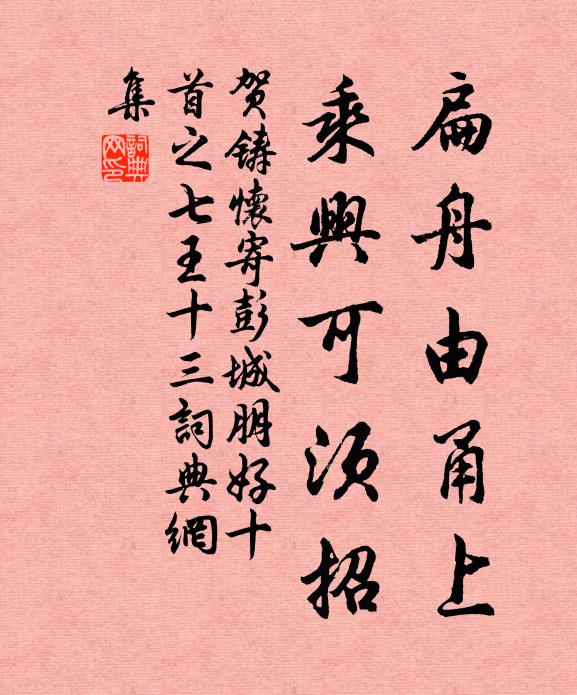 扁舟由甬上
乘興可須招
賀鑄懷寄彭城朋好十
首之七王十三詞典網
集
詞典網印